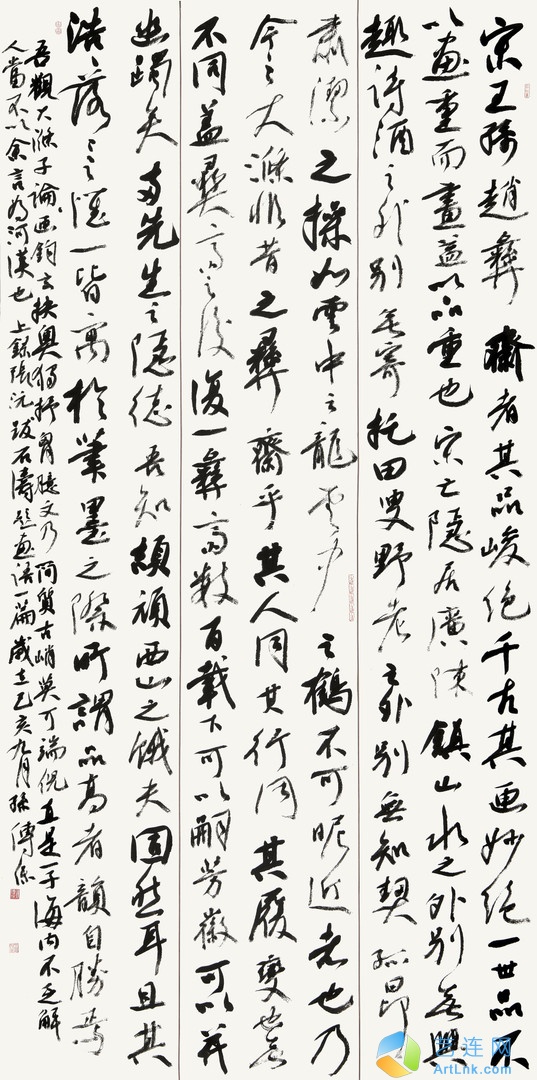 宋王孫趙彝齋者其品峻絕千古其画妙絕一世品不
以画重而畫益以品重也宋亡隱居廣陳鎮山水之外別無興
趣詩酒之外別無寄托田叟野老之外別無知契孤昂
肅潔之操如雲中之龍雲中之鶴不可昵近者也乃
今之大滌非昔之彝齋乎其人同其行同其履變也無
不同蓋彝齋之後復一彝齋數百載下可以嗣芳徽可以并
幽躅矣兩先生之隱德吾知頡頏西山之餓夫固然耳且其
浩〻落〻之懷一皆寓於筆墨之際所謂品高者韻自勝焉
吾觀大滌子論画鈎玄抉奧獨抒胷臆文乃簡質古峭莫可端倪直是一子海內不乏解
人當不以余言為河漢也 上錄張沅跋石濤題画語一篇歲在己亥九月孫傳
艺连网
ArtLnk.com